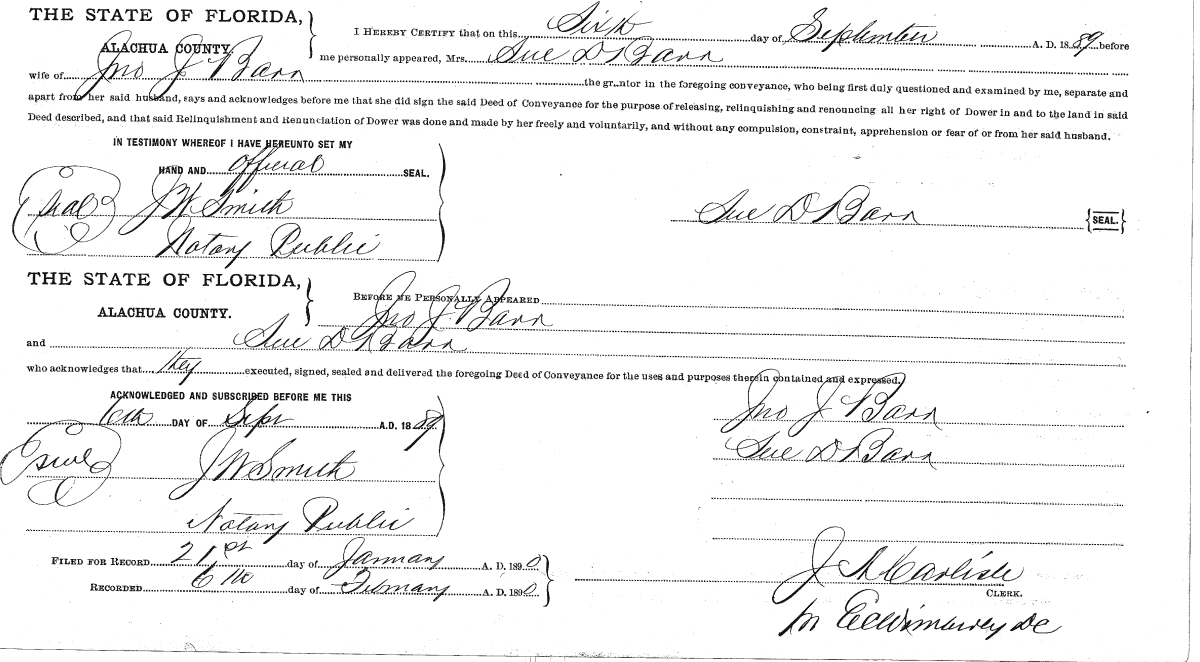 THE STATE OF FLORIDA,
ALACHUA COUNTY.
I HEREBY CERTIFY that on this Sixth day of September A. D. 1889 before
me personally appeared, Mrs. Sue D Barr
wife of Jno J Barr the gr..ntor in the foregoing conveyance, who being first duly questioned and examined by me, separate and
apart from her said husband, says and acknowledges before me that she did sign the said Deed of Conveyance for the purpose of releasing, relinquishing and renouncing all her right of Dower in and to the land in said
Deed described, and that said Relinquishment and Renunciation of Dower was done and made by her freely and voluntarily, and without any compulsion, constraint, apprehension or fear of or from her said husband.
IN TESTIMONY WHEREOF I HAVE HEREUNTO SET MY
HAND AND official SEAL.
seal J W Smith
Notary Public
Sue D Barr {SEAL.}
THE STATE OF FLORIDA,
ALACHUA COUNTY.
BEFORE ME PERSONALLY APPEARED
Jno J. Barr
and Sue D Barr
who acknowledges that they executed, signed, sealed and delivered the foregoing Deed of Conveyance for the uses and purposes therein contained and expressed.
ACKNOWLEDGED AND SUBSCRIBED BEFORE ME THIS
6th DAY OF Sept A.D. 1889
Jno J Barr
Sue D Barr
seal J W Smith
Notary Public
FILED FOR RECORD 21st day of January A. D. 1890
RECORDED 6th day of February A. D. 1890
J A Carlisle
CLERK.
DC